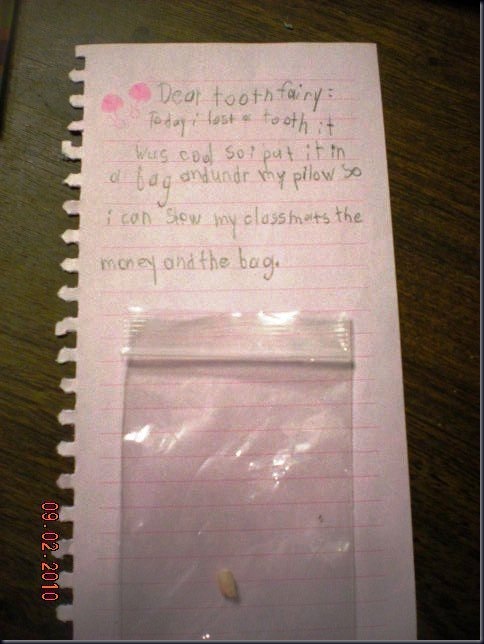 Dear toothfairy:
Today i lost a tooth it
was cool so i put it in
a bag andundr my pilow so
i can Stow my classmats the
money andthe bag.
09.02.2010